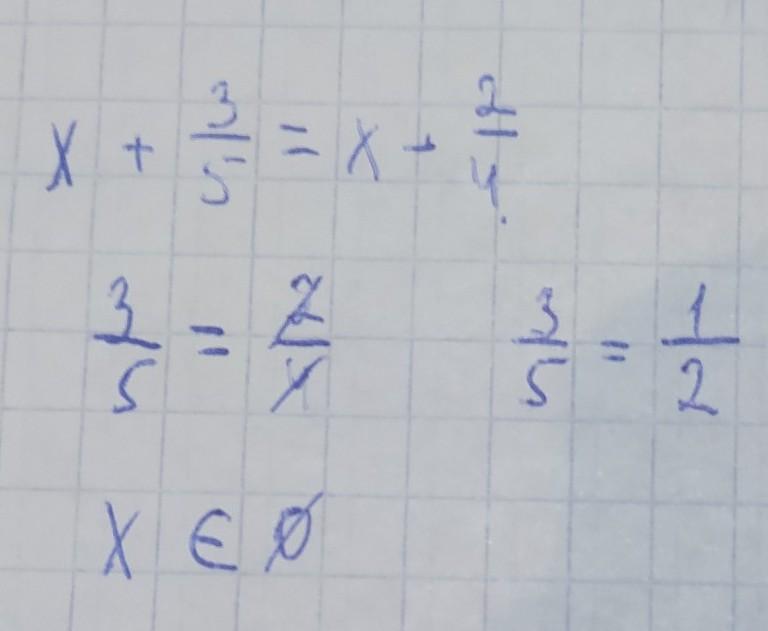 x + 3/5 = x - 2/4.
3/5 = 2/4 3/5 = 1/2
x ∈ ∅